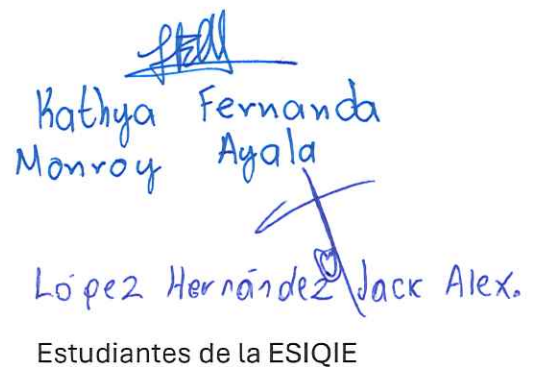 Kathya Fernanda
Monroy Ayala
López Hernández Jack Alex.
Estudiantes de la ESIQIE